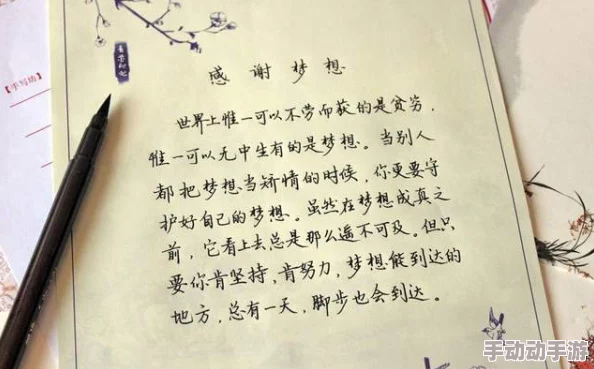 感谢梦想
世界上惟一可以不劳而获的是贫穷，
惟一可以无中生有的是梦想。当别人
都把梦想当矫情的时候，你更要守
护好自己的梦想。虽然在梦想成真之
前，它看上去总是那么遥不可及。但只
要你肯坚持，肯努力，梦想能到达的
地方，总有一天，脚步也会到达。
手动动手游